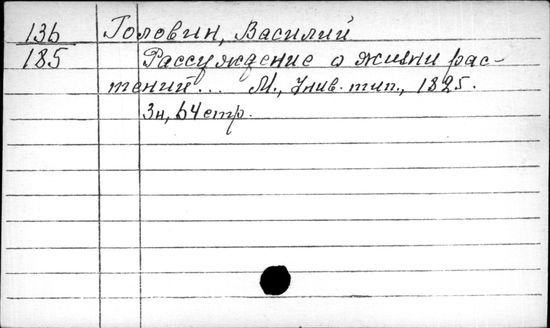 136 Головин, Василий
185 Рассуждение о жизни рас-
тений... М., Унив. тип., 1825.
3н, 64 стр.